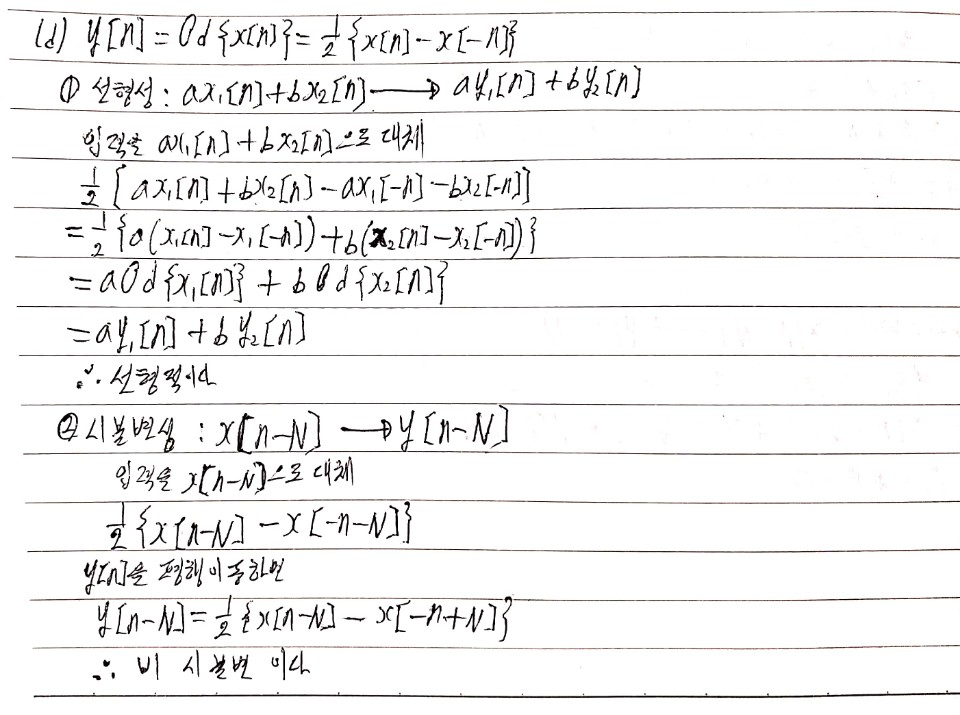 (d) y[n] = Od{x[n]} = 1/2 {x[n] - x[-n]}
① 선형성 : ax₁[n] + bx₂[n] → ay₁[n] + by₂[n]
입력을 ax₁[n] + bx₂[n]으로 대체
1/2 [ax₁[n] + bx₂[n] - ax₁[-n] - bx₂[-n]]
= 1/2 {a(x₁[n] - x₁[-n]) + b(x₂[n] - x₂[-n])}
= aOd{x₁[n]} + bOd{x₂[n]}
= ay₁[n] + by₂[n]
∴ 선형적이다
② 시불변성 : x[n-N] → y[n-N]
입력을 x[n-N]으로 대체
1/2 {x[n-N] - x[-n-N]}
y[n]을 평행이동하면
y[n-N] = 1/2 {x[n-N] - x[-n+N]}
∴ 비 시불변 이다